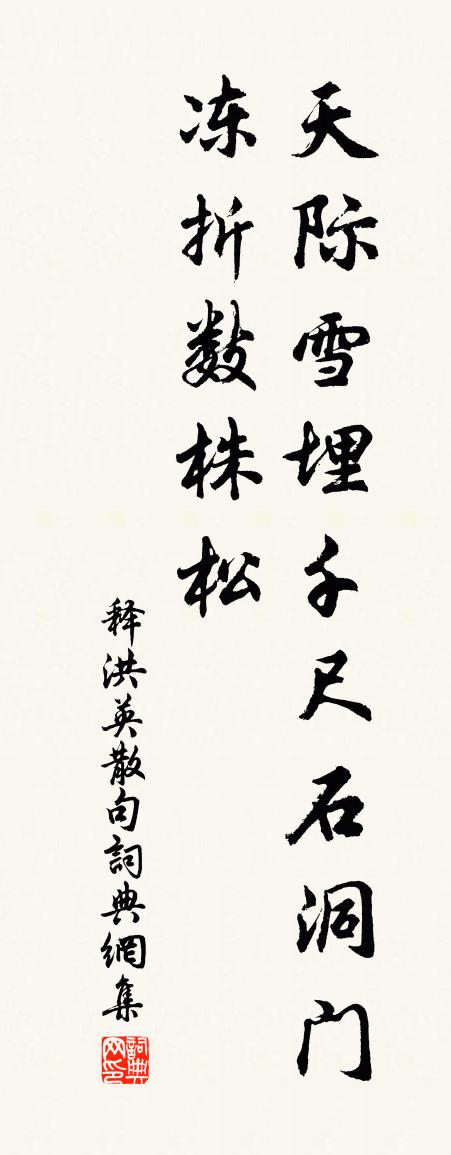 天际雪埋千尺石洞门
冻折数株松
释洪英散句詞典網集
詞典网印